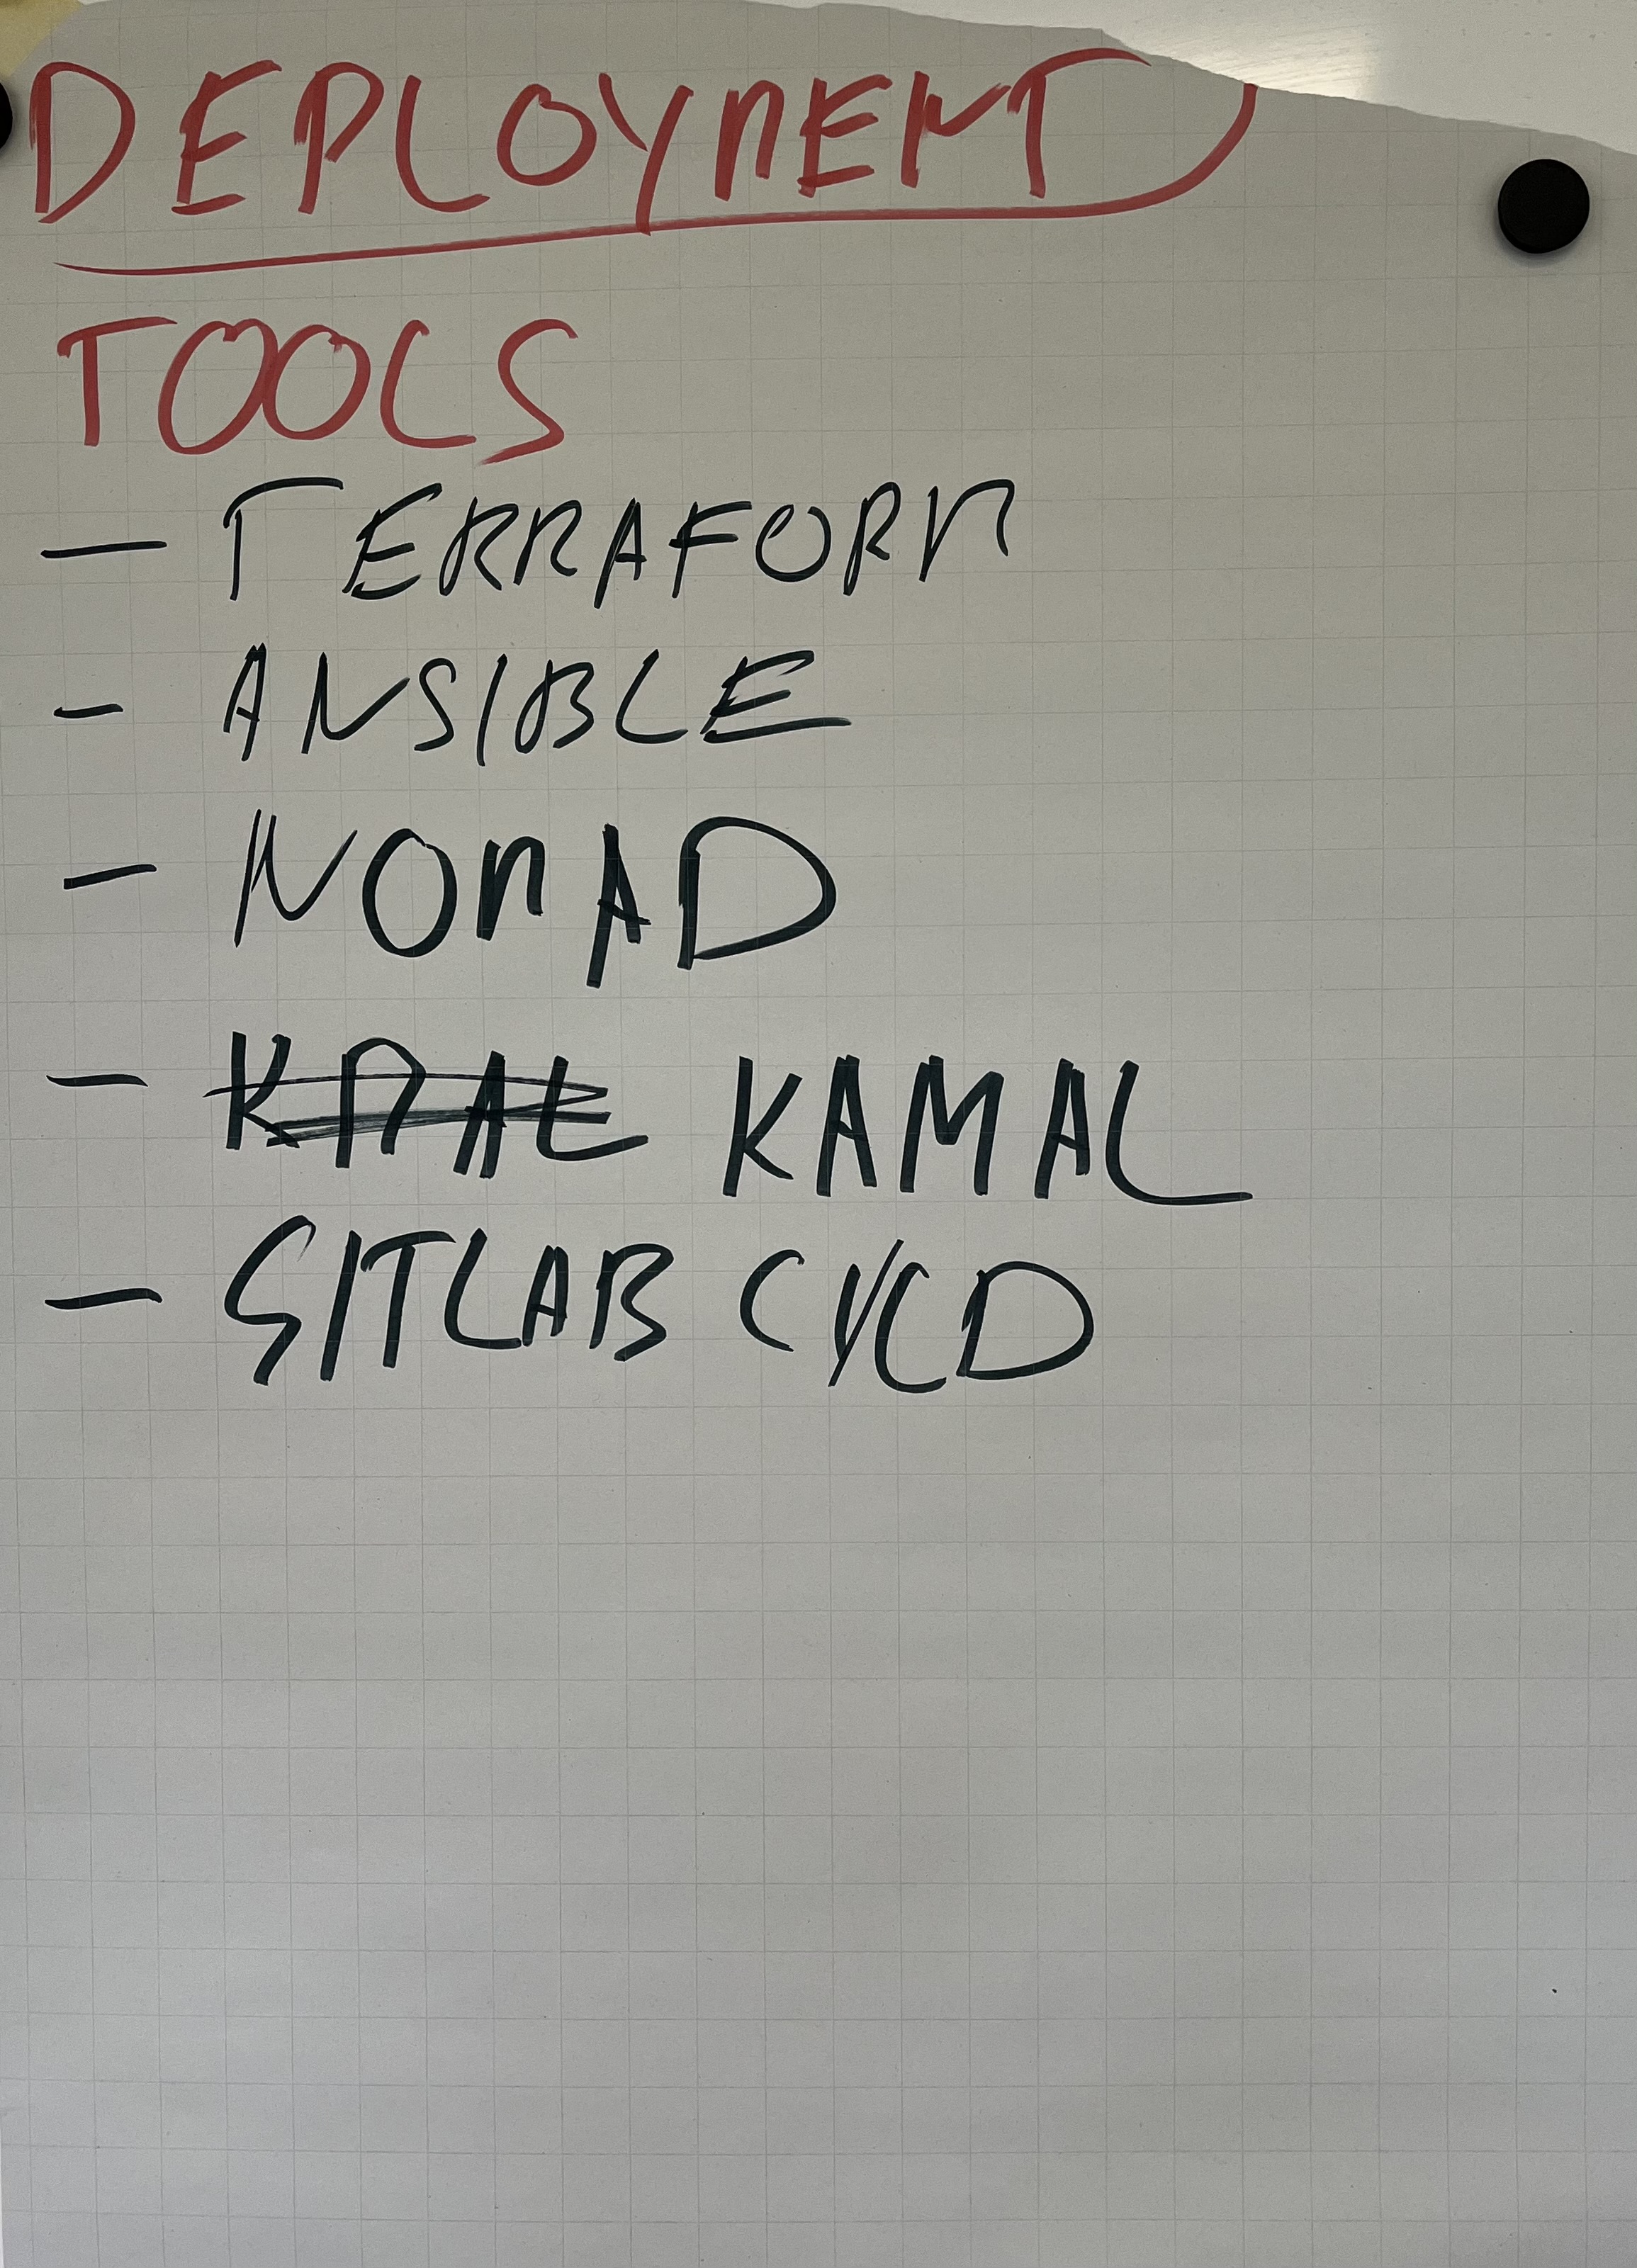 DEPLOYMENT
TOOLS
- TERRAFORM
- ANSIBLE
- NOMAD
- KMAL KAMAL
- GITLAB CI/CD